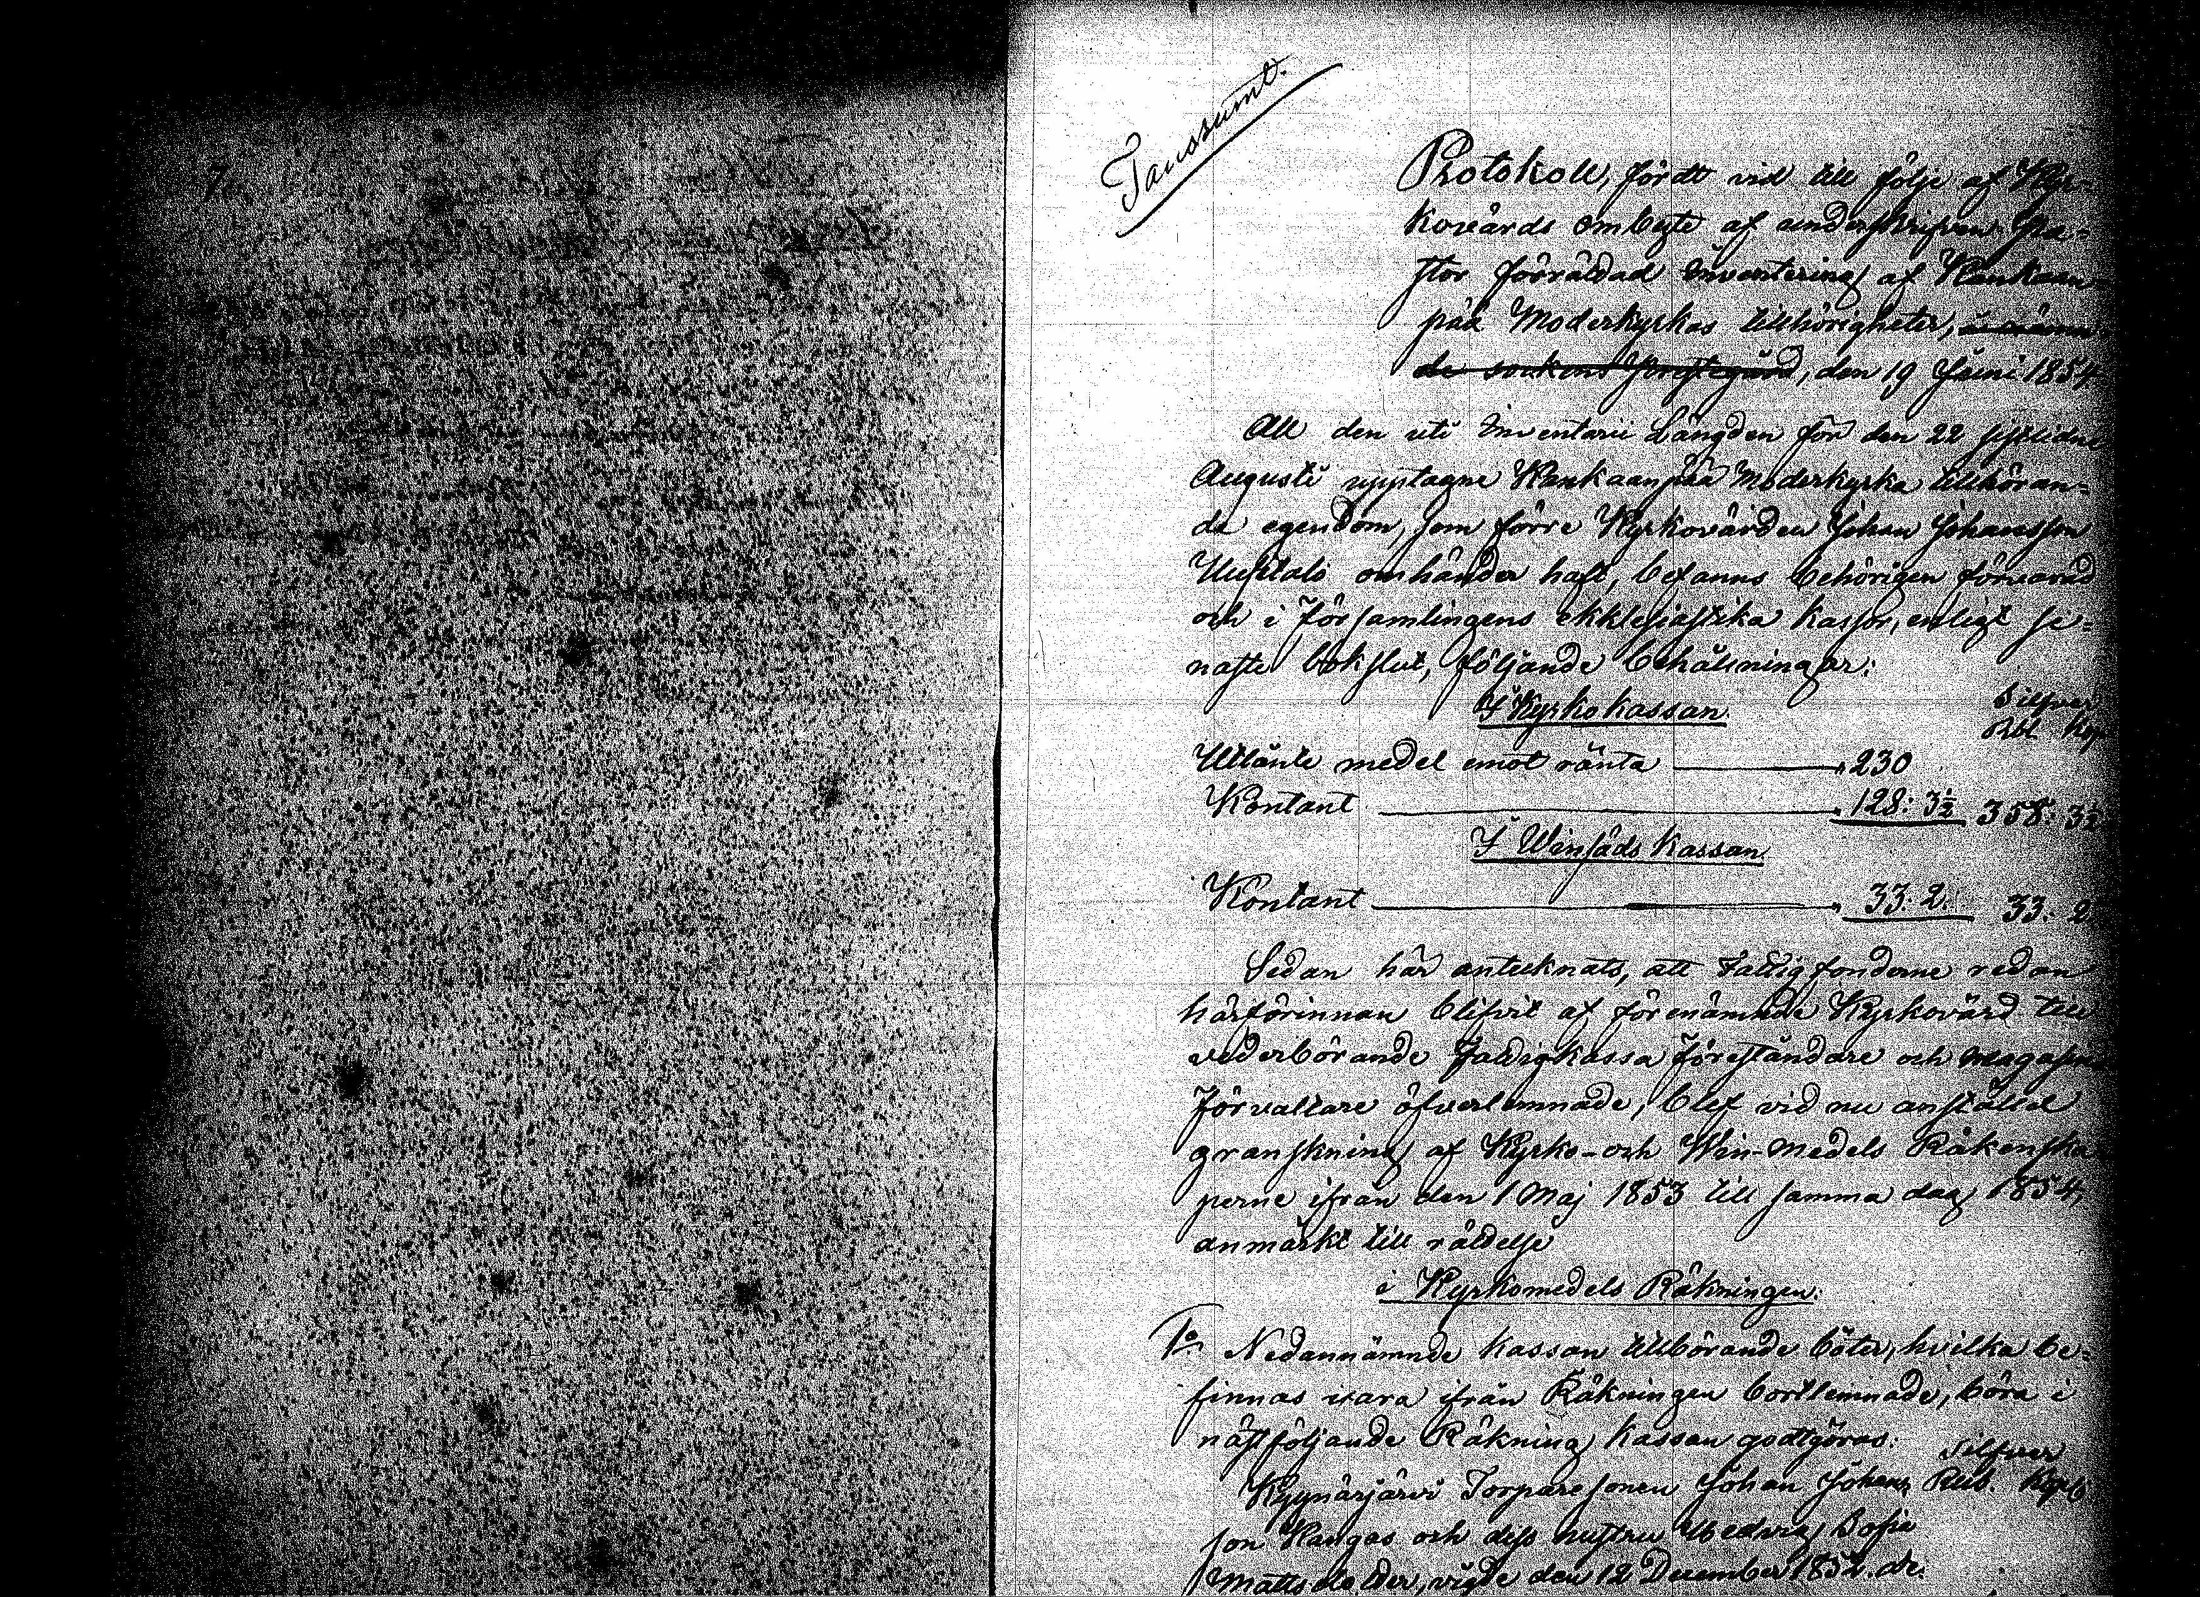 7.
Transsumt.
Protokoll, fördt vid till följe af Kyr-
kovårds ombyte af underskrifven Pa-
stor förrättad Inventering af Kankaan-
pää Moderkyrkas tillhörigheter, i nämn-
de sockens Prestegård, den 19 Juni 1854.
All den uti Inventarii Längden för den 22 sistlidne
Augusti upptagne Kankaanpää Moderkyrka tillhöran-
de egendom, som förre Kyrkovärden Johan Johansson
omhänder haft, befanns behörigen förvarad
och i Församlingens ekklesiastika kassor, enligt se-
naste bokslut, följande behållningar:
I Kyrkokassan
Silfver
Rbl Kop
Utlånte medel emot ränta 230
Kontant 128: 3½ 358: 3½
I Winsäds Kassan
Kontant 33. 2. 33. 2
Sedan här antecknats, att Fattigfonderne redan
härförinnan blifvit af förenämnde Kyrkovärd till
vederbörande Fattigkassa Föreståndare och Magasins
Förvaltare öfverlemnade, blef vid nu anstäld
granskning af Kyrko- och Win-medels Räkenska-
perne ifrån den 1 Maj 1853 till samma dag 1854,
anmärkt till rättelse
i Kyrkomedels Räkningen:
1o Nedannämnde kassan tillhörande böter, hvilka be-
finnas vara ifrån Räkningen bortlemnade, böra i
nästföljande Räkning kassan godtgöras: Silfver
Kyynärjärvi Torparesonen Johan Johans- Rub. Kop
son Kangas och dess hustru Hedvig Sofia
Mattsdotter, vigde den 12 December 1852. de.